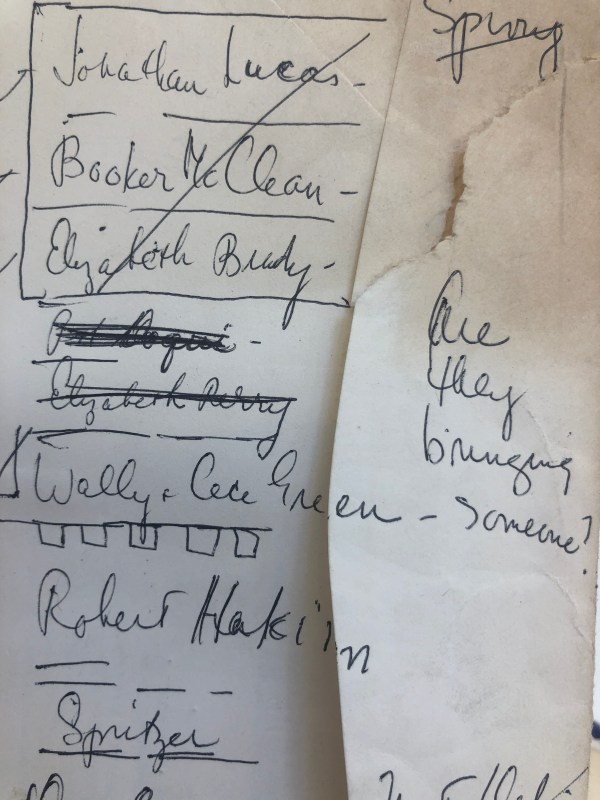 Spring
Jonathan Lucas-
Booker McClean-
Elizabeth Brady-
Elizabeth Perry
Wally & Cece Green - Someone?
Are
they
bringing
Robert Hakim
Spritzer